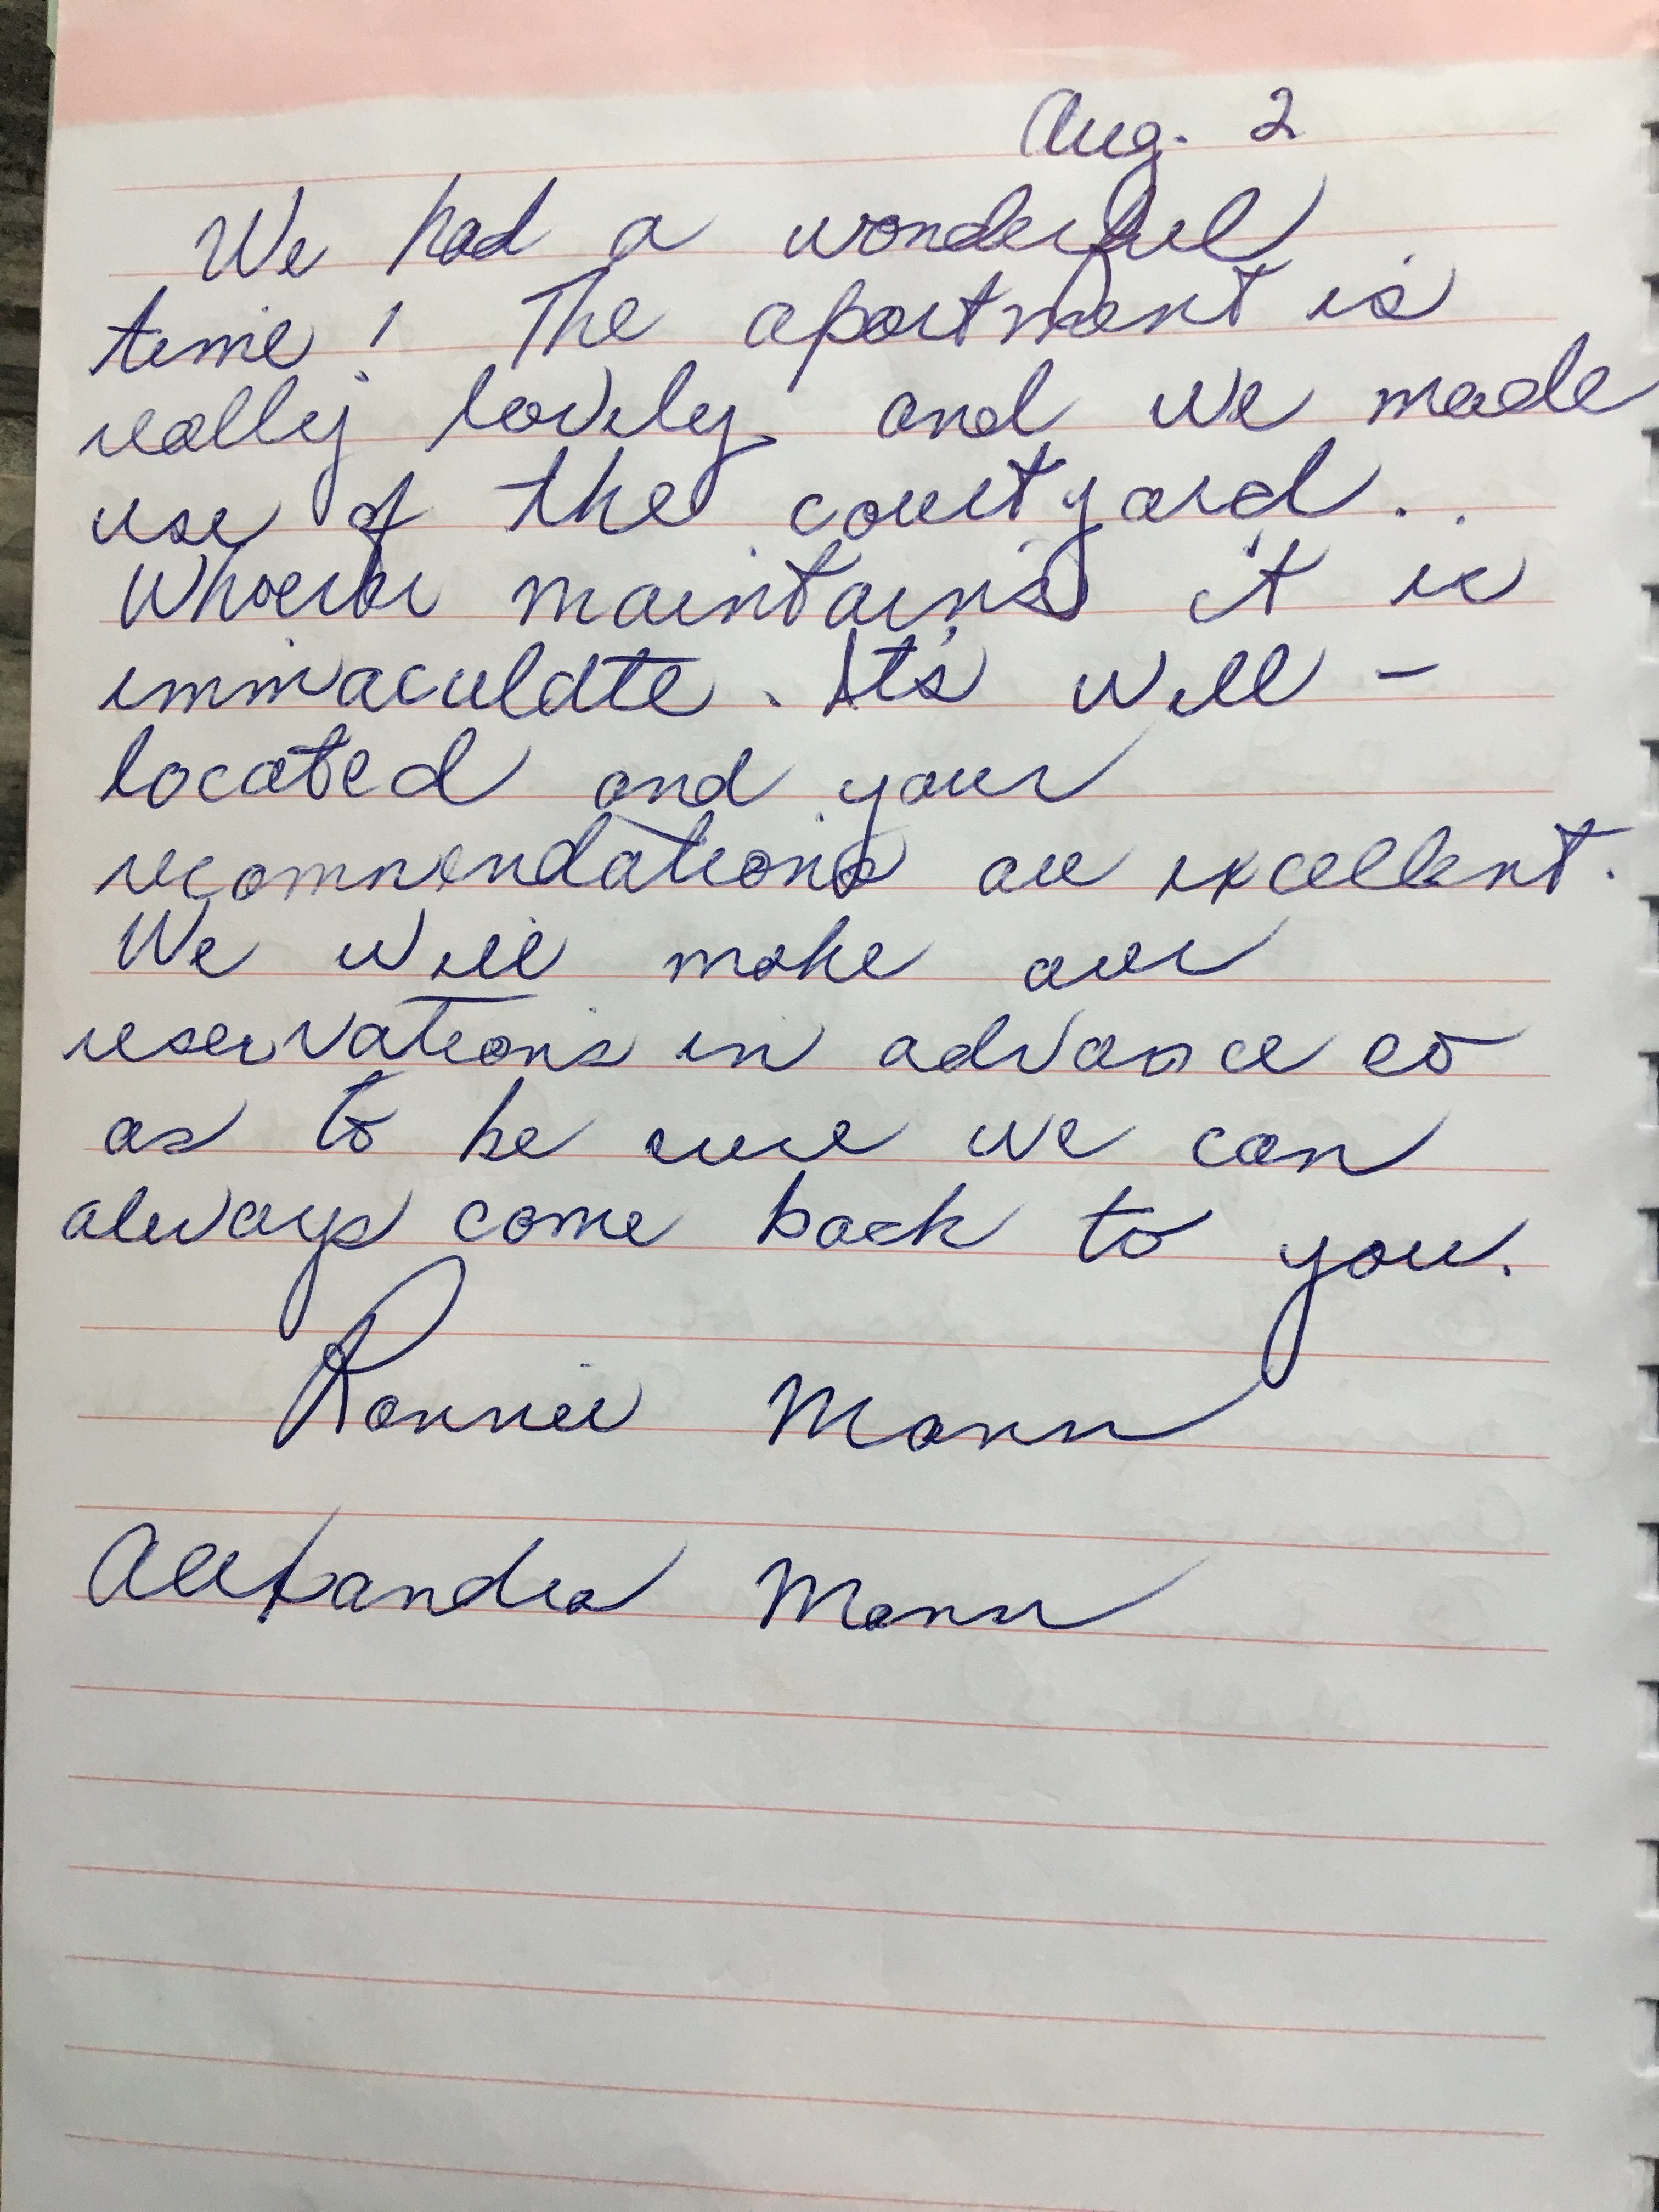 Aug. 2
We had a wonderful
time! The apartment is
really lovely and we made
use of the courtyard.
Whoever maintains it is
immaculate. It's well-
located and your
recommendations are excellent.
We will make our
reservations in advance so
as to be sure we can
always come back to you.
Ronnie Mann
Alexandra Mann